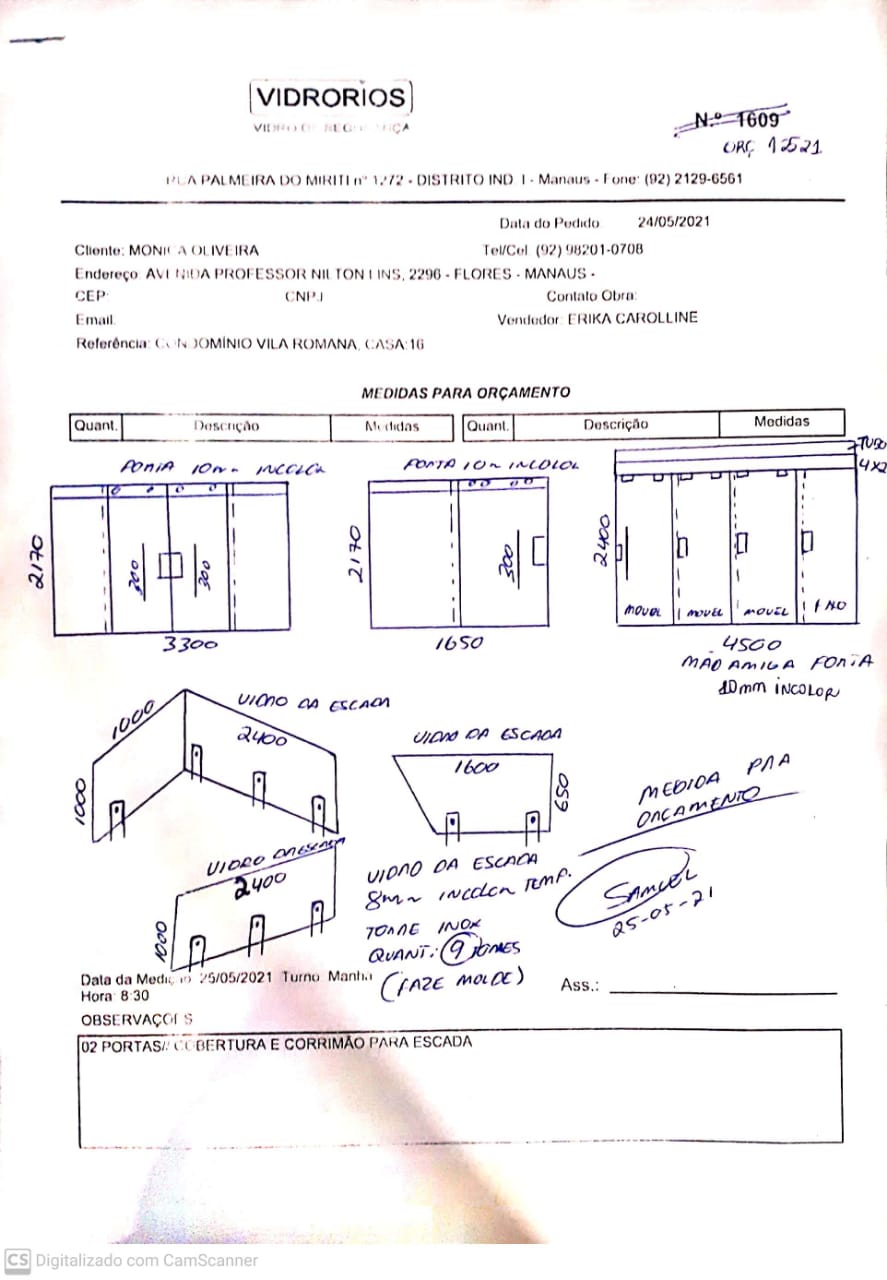 VIDRORIOS
VIDRO DE SEGURANÇA
N.º 1609
ORÇ 12521
RUA PALMEIRA DO MIRITI nº 1272 - DISTRITO IND I - Manaus - Fone: (92) 2129-6561
Data do Pedido 24/05/2021
Cliente: MONICA OLIVEIRA Tel/Cel (92) 98201-0708
Endereço AVENIDA PROFESSOR NILTON LINS, 2296 - FLORES - MANAUS -
CEP: CNPJ Contato Obra:
Email: Vendedor: ERIKA CAROLLINE
Referência: CONDOMÍNIO VILA ROMANA, CASA:16
MEDIDAS PARA ORÇAMENTO
Quant. Descrição Medidas Quant. Descrição Medidas
PORTA 10mm INCOLOR
2170
300
300
3300
PORTA 10m INCOLOR
2170
300
1650
TUBO
4X2
2400
MOVEL MOVEL MOVEL FIXO
4500
MÃO AMIGA PORTA
10mm INCOLOR
1000
1000
VIDRO DA ESCADA
2400
VIDRO DA ESCADA
1600
650
MEDIDA PRA
ORÇAMENTO
VIDRO DA ESCADA
2400
1000
VIDRO DA ESCADA
8mm INCOLOR TEMP.
TORRE INOX
QUANT: 9 TORRES
(FAZE MOLDE)
SAMUEL
25-05-21
Data da Medição 25/05/2021 Turno Manhã
Hora: 8:30
Ass.:
OBSERVAÇÕES
02 PORTAS// COBERTURA E CORRIMÃO PARA ESCADA
CS Digitalizado com CamScanner